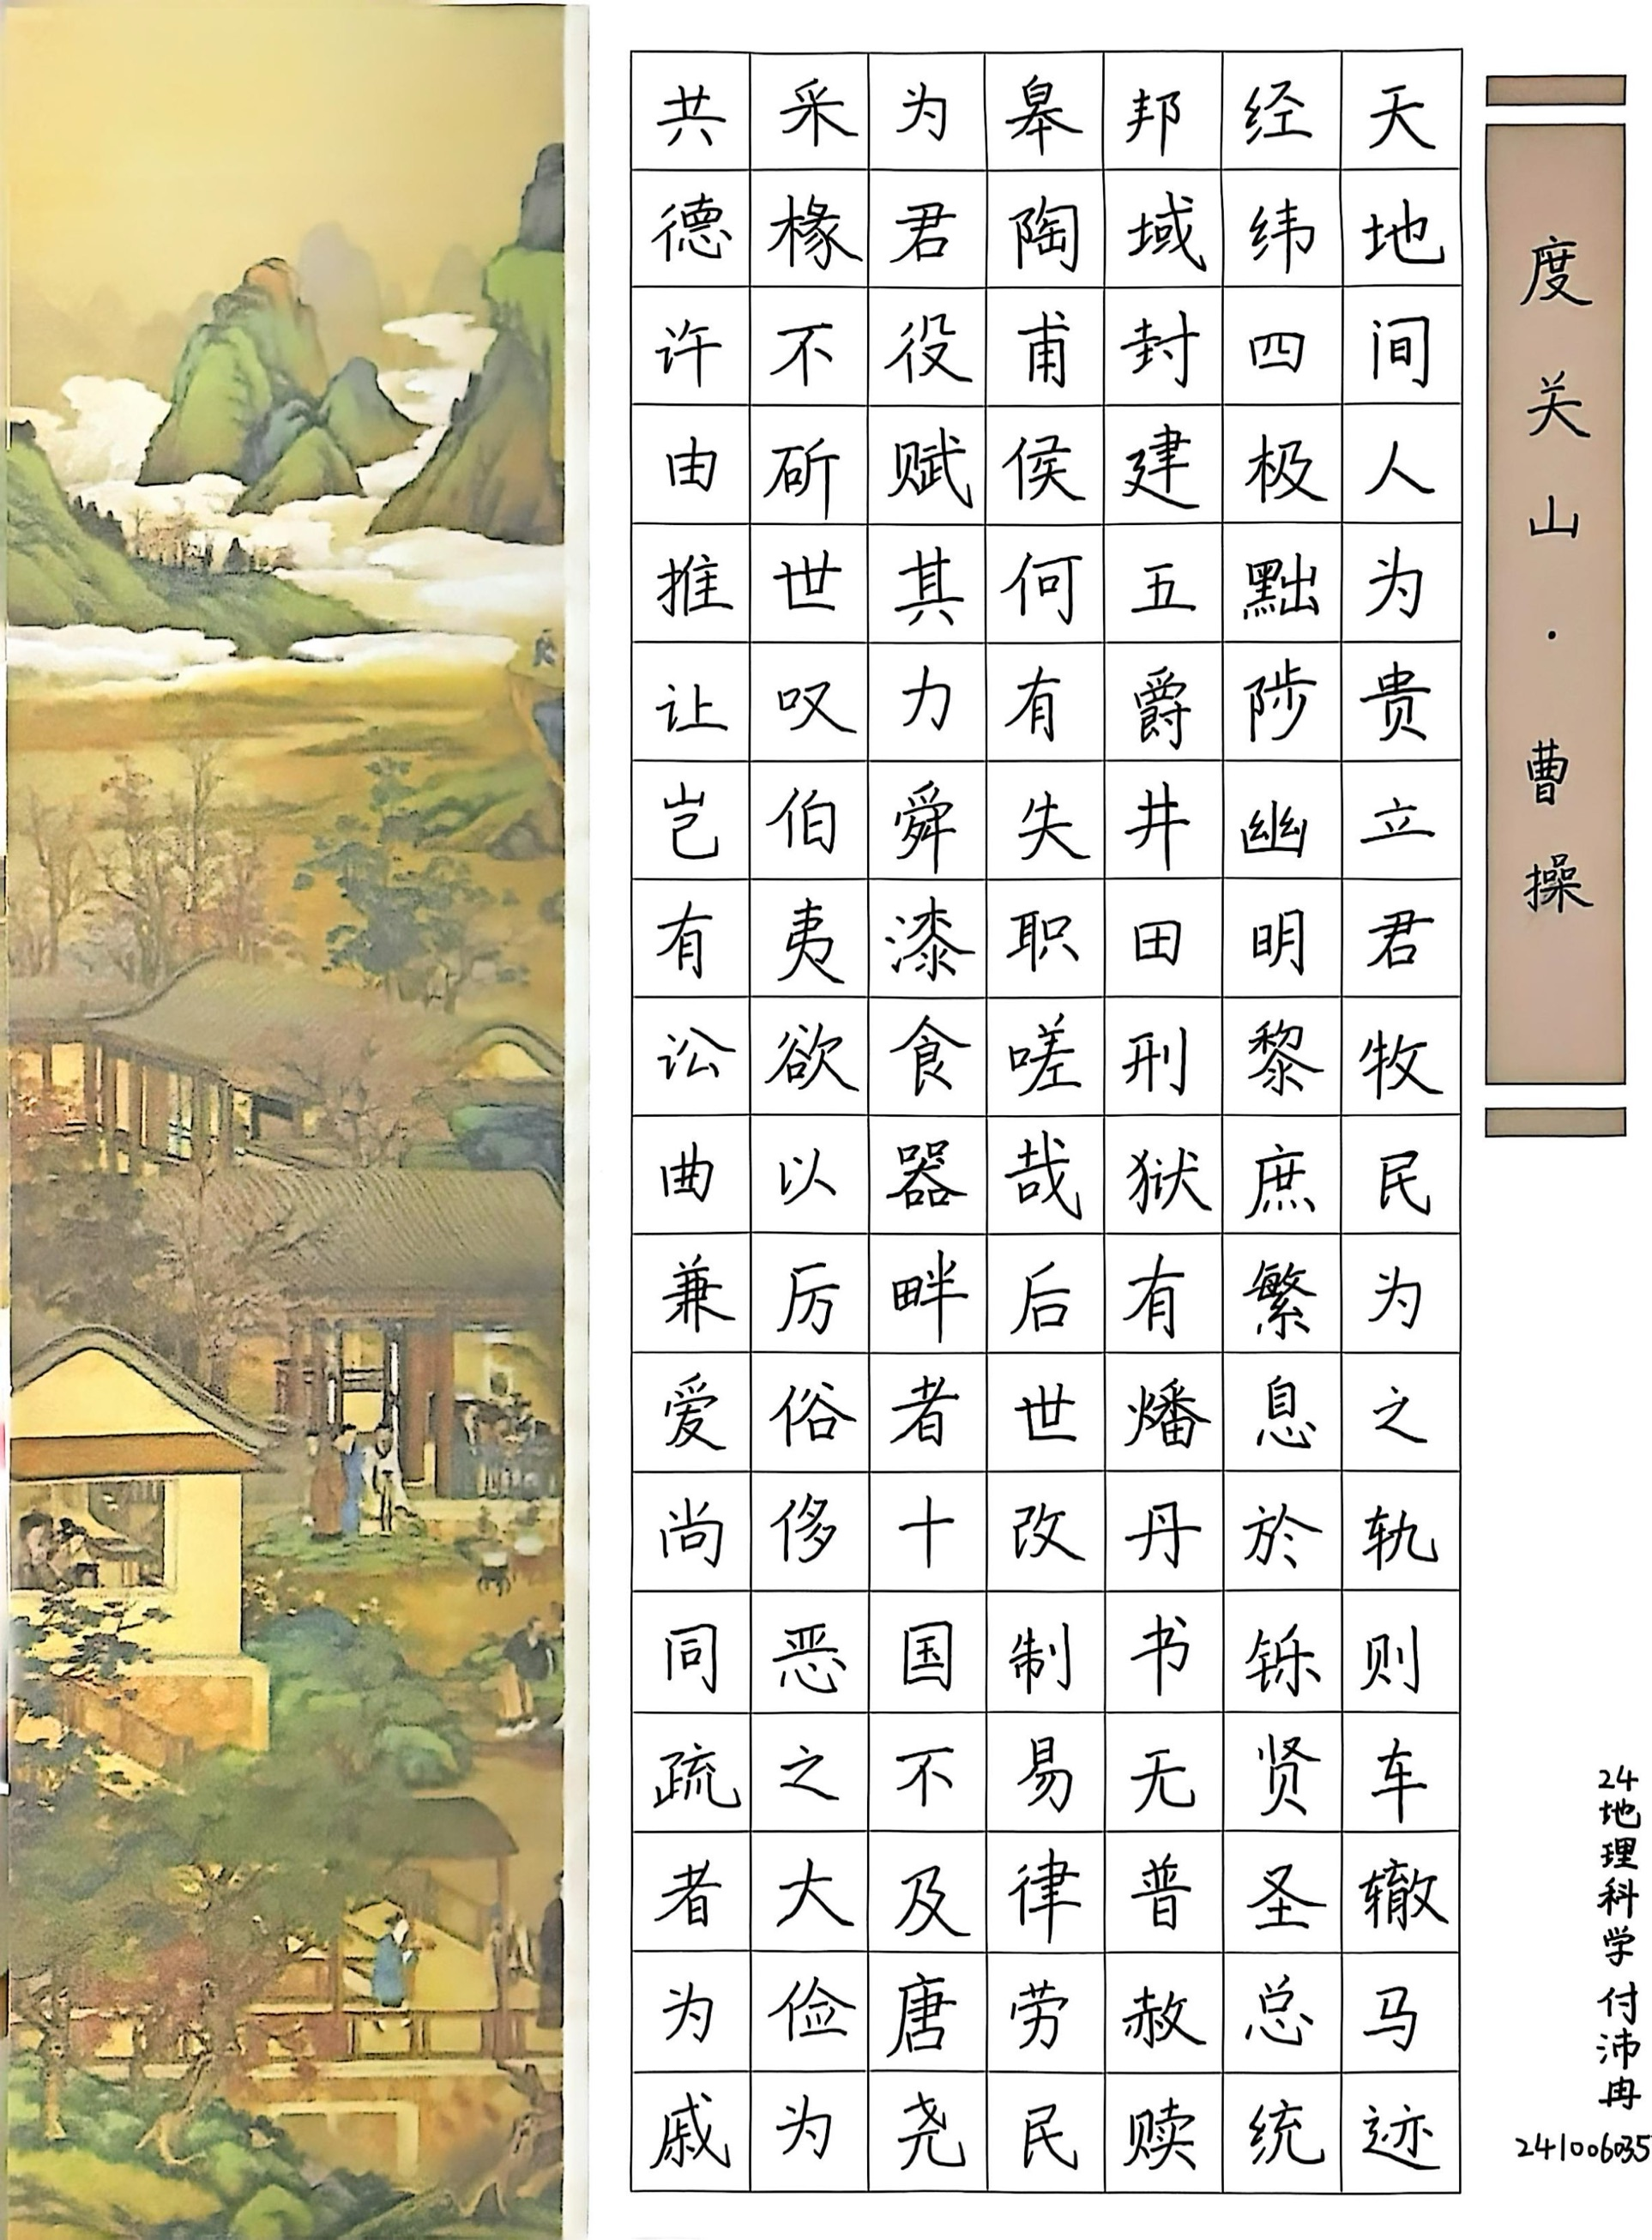 度关山·曹操
天地间人为贵立君牧民为之轨则车辙马迹
经纬四极黜陟幽明黎庶繁息於铄贤圣总统
邦域封建五爵井田刑狱有燔丹书无普赦赎
皋陶甫侯何有失职嗟哉后世改制易律劳民
为君役赋其力舜漆食器畔者十国不及唐尧
采椽不斫世叹伯夷欲以厉俗侈恶之大俭为
共德许由推让岂有讼曲兼爱尚同疏者为戚
24地理科学付沛冉
241006035